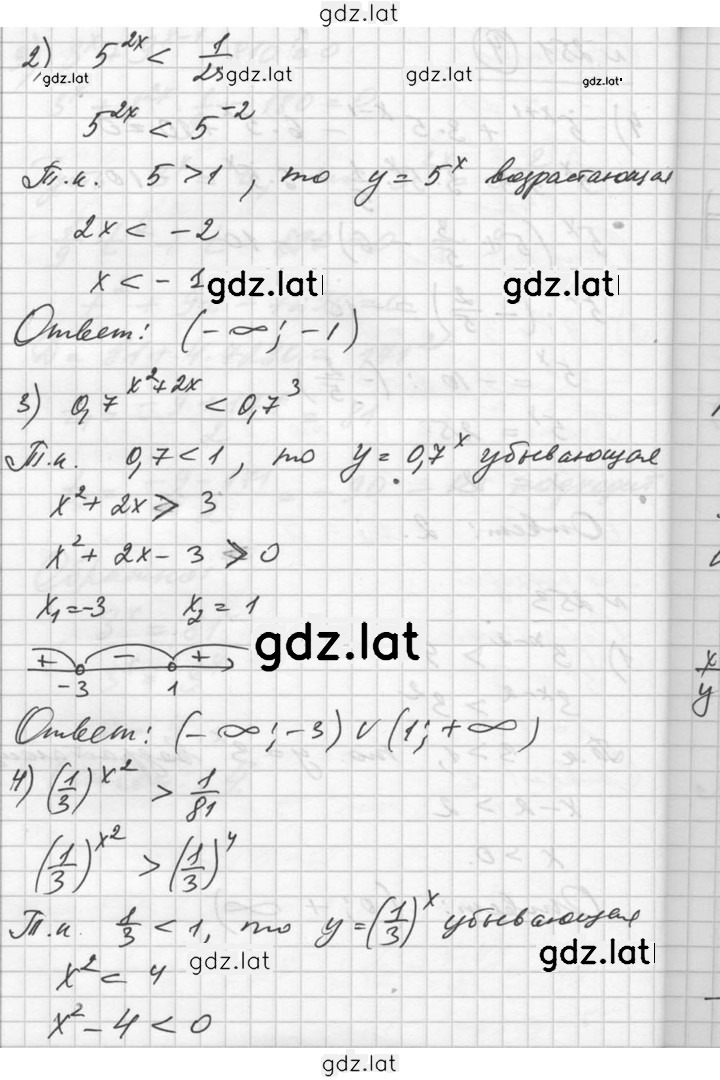 gdz.lat
2) 5^{2x} < 1/25
gdz.lat gdz.lat gdz.lat gdz.lat
5^{2x} < 5^{-2}
Т.к. 5 > 1, то y = 5^x возрастающая
2x < -2
x < -1
gdz.lat gdz.lat
Ответ: (-∞; -1)
3) 0,7^{x²+2x} < 0,7^3
Т.к. 0,7 < 1, то y = 0,7^x убывающая
x² + 2x > 3
x² + 2x - 3 > 0
x₁ = -3 x₂ = 1
gdz.lat
+ - +
-3 1
x
y
Ответ: (-∞; -3) ∪ (1; +∞)
4) (1/3)^{x²} > 1/81
(1/3)^{x²} > (1/3)^4
Т.к. 1/3 < 1, то y = (1/3)^x убывающая
gdz.lat gdz.lat
x² < 4
x² - 4 < 0
gdz.lat